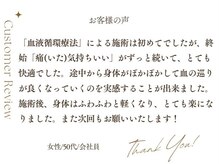 お客様の声
Customer Review
『血液循環療法』による施術は初めてでしたが、終
始「痛(いた)気持ちいい」がずっと続いて、とても
快適でした。途中から身体がぽかぽかして血の巡り
が良くなっていくのを実感することが出来ました。
施術後、身体はふわふわと軽くなり、とても楽にな
りました。また次回もお願いいたします!
女性/50代/会社員
Thank You!